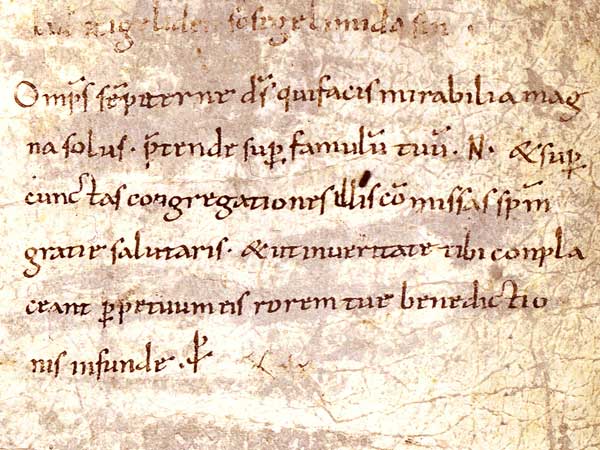 Omp̄s sēpiterne d̄s qui facis mirabilia mag
na solus · p̄tende sup̱ famulū tuū · N · & sup̱
cunctas congregationes illis cōmissas sp̄m
gratie salutaris · & ut inveritate tibi conpla
ceant p̱petuum eis rorem tue benedictio
nis infunde · p̱